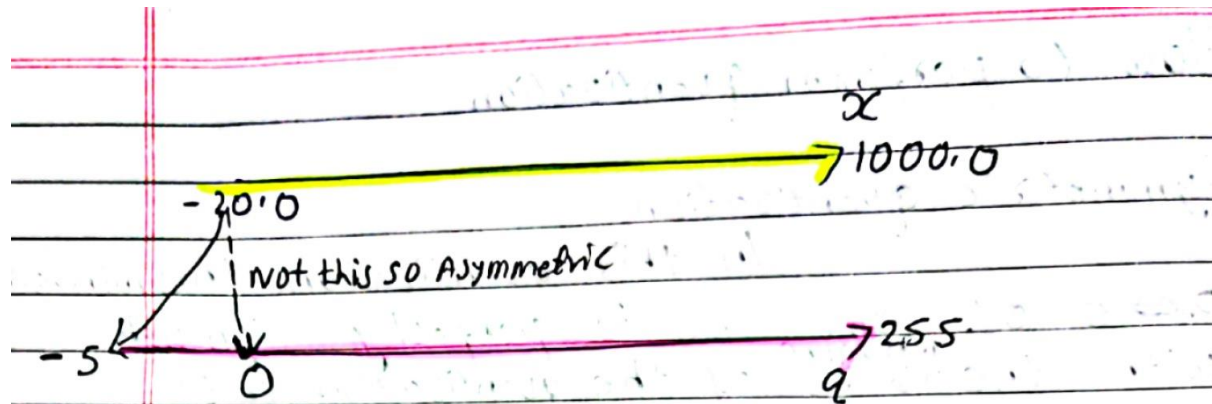 x
1000.0
-20.0
Not this so Asymmetric
-5
255
0
q